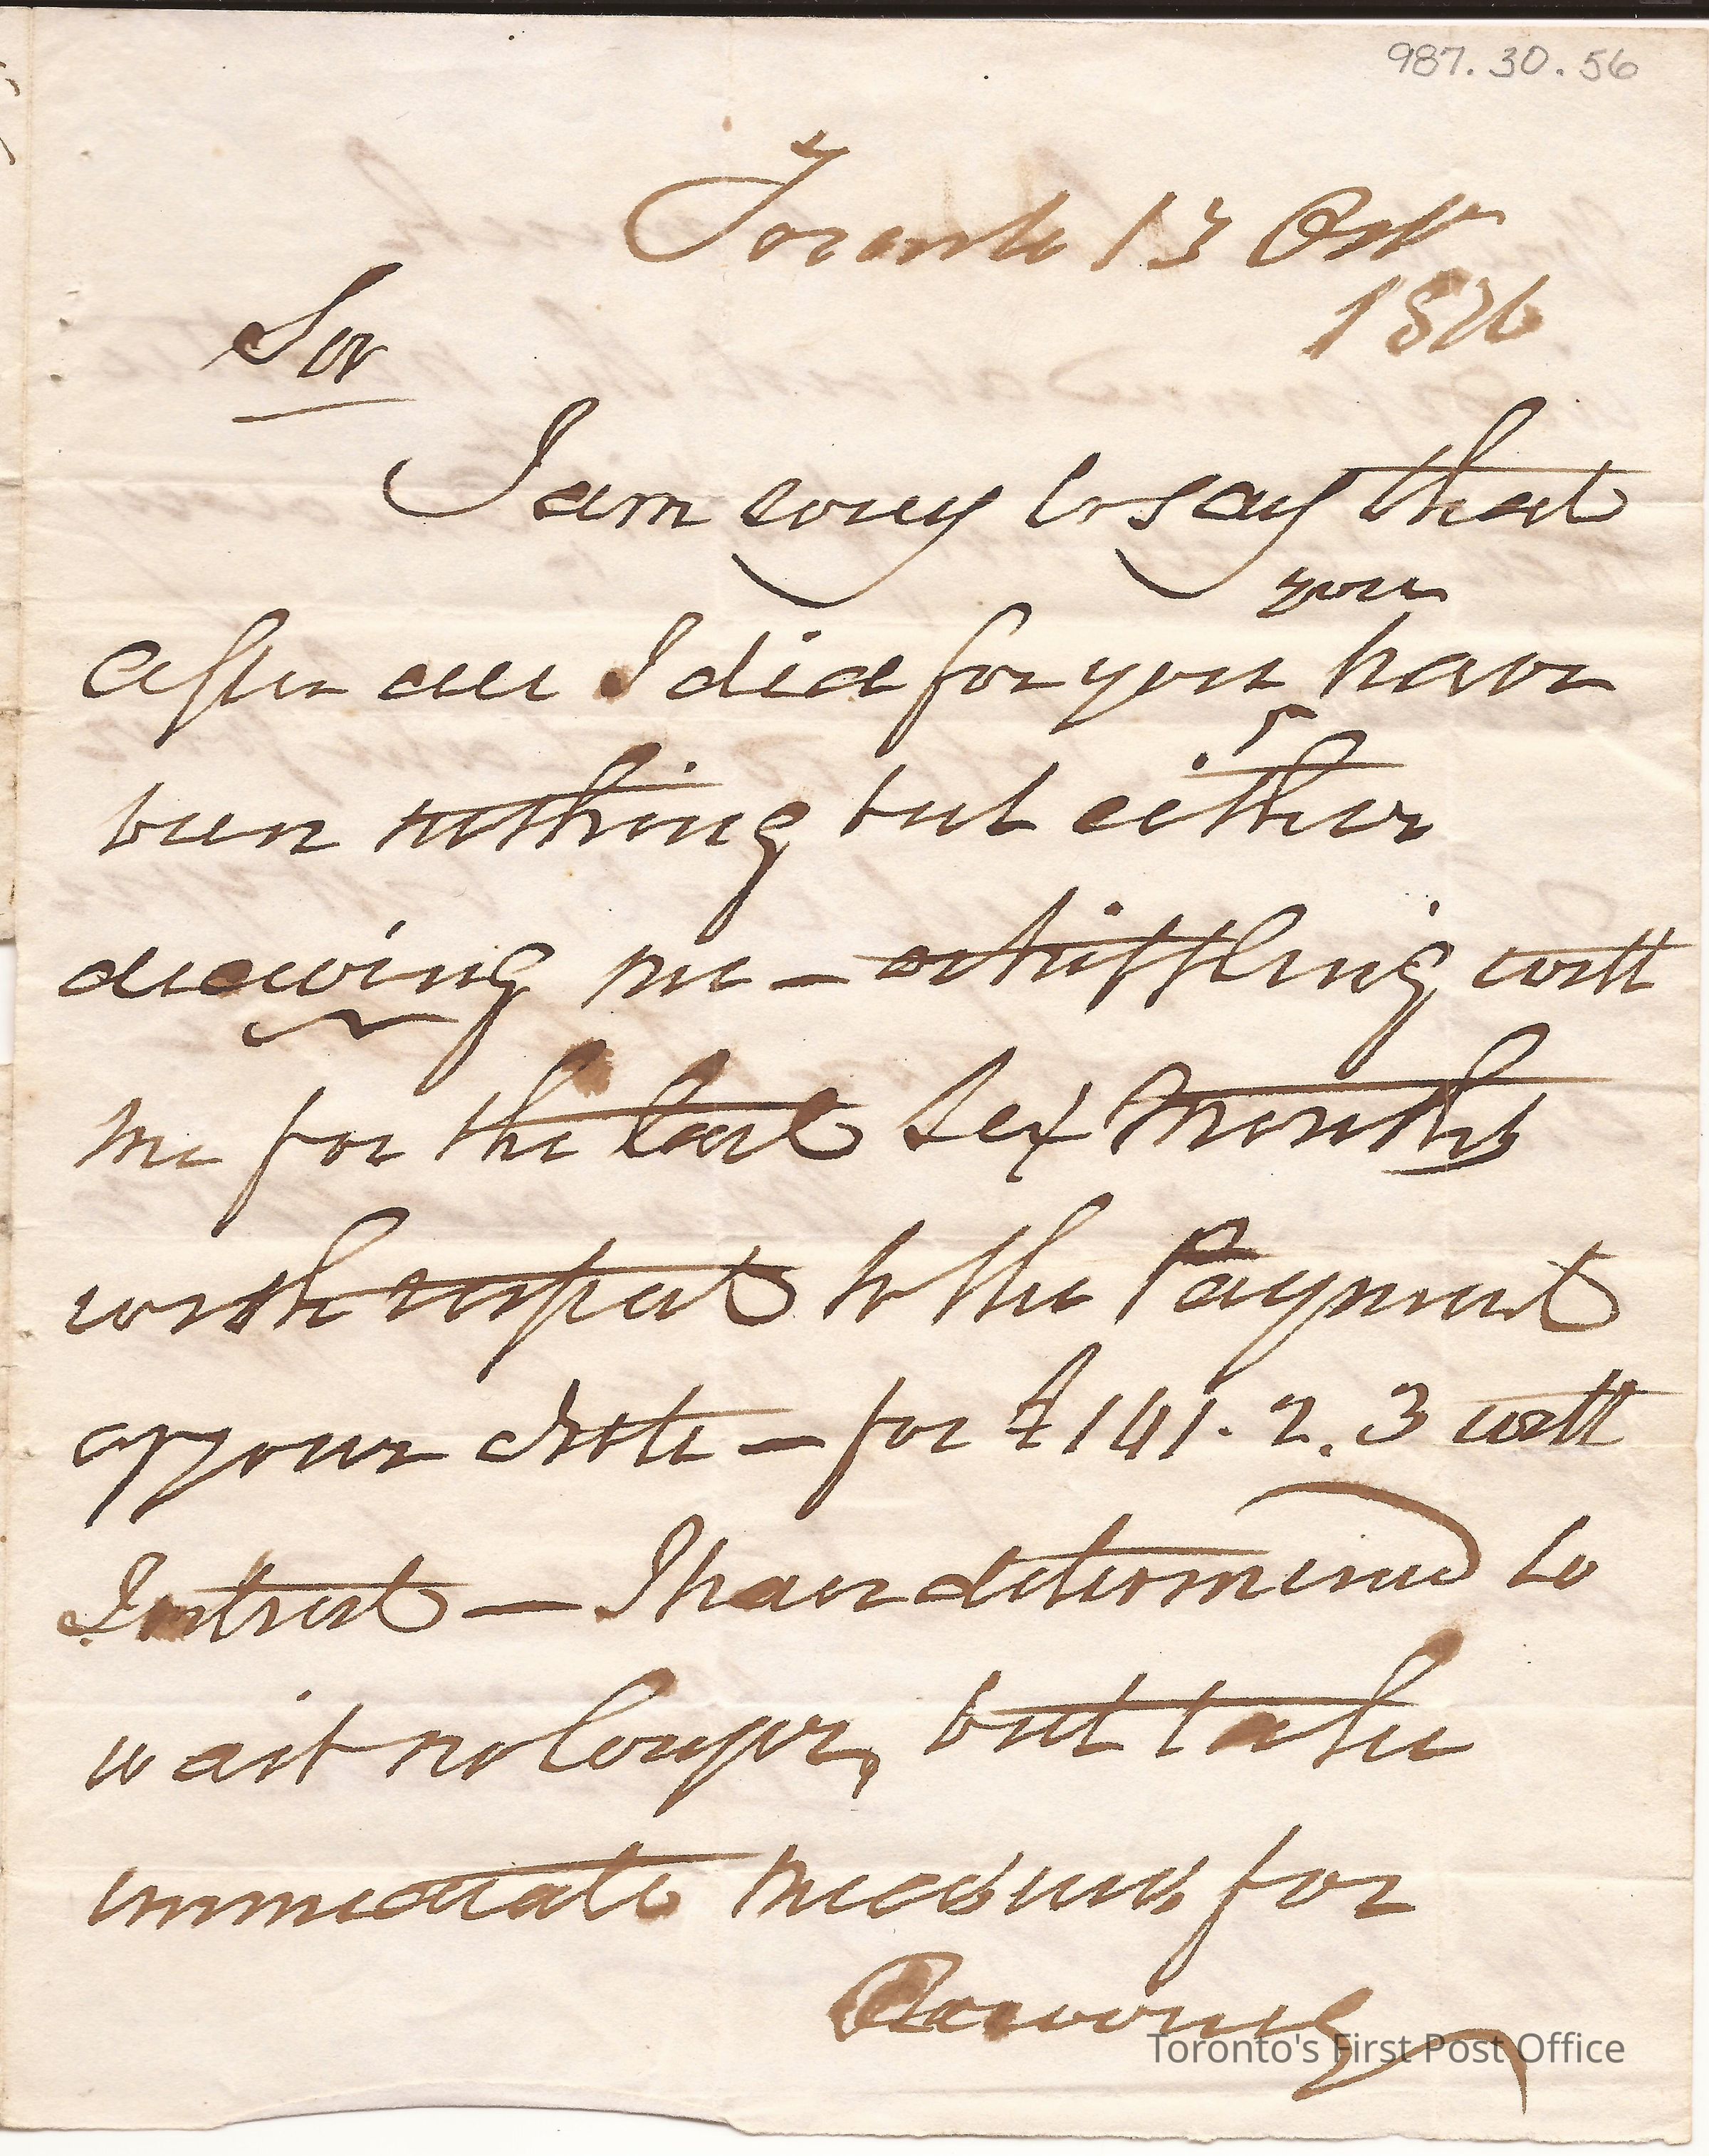 987.30.56
Toronto 13 Octr
1836
Sir
I am sorry to say that
you
after all I did for you have
been nothing but either
me — or with
me for the last Six Months
with respect to the Payment
of your Note — for £141.2.3 with
Intrest — I have determined to
wait no longer, but take
immediate measures for
Toronto's First Post Office